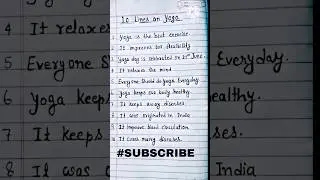 10 Lines on Yoga
1 Yoga is the best exercise
2 It improves our flexibility
3 Yoga day is celebrated on 21st June.
4 It relaxes the mind
5 Everyone should do yoga Everyday.
6 Yoga keeps our body healthy.
7 It keeps away diseases.
8 It was originated in India
9 It improve blood circulation
10 It cures many diseases.
#SUBSCRIBE
4 It relaxes
5 Everyone S
Everyday.
6 Yoga keeps
healthy.
7 It keeps
8 It was
India